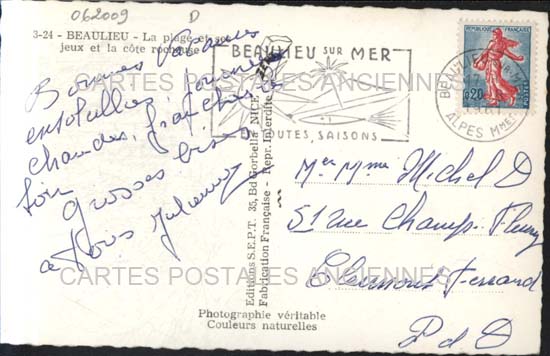 062009 D
3-24 - BEAULIEU - La plage et ses
jeux et la côte rocheuse
Bonnes Vacances
ensoleillées, journées
chaudes, fraîches le
soir
Grosses bises
à tous
Editions S.E.P.T. 35, Bd Gorbella NICE
Fabrication Française - Repr. Interdite
BEAULIEU SUR MER
TOUTES SAISONS
REPUBLIQUE FRANÇAISE
0,20
POSTES
BEAULIEU S/ MER
17
ALPES Mmes
Mr et Mme Michel D
51 rue Champ-Fleury
Clermont-Ferrand
P d D
Photographie véritable
Couleurs naturelles
CARTES POSTALES ANCIENNES
CARTES POSTALES ANCIENNES